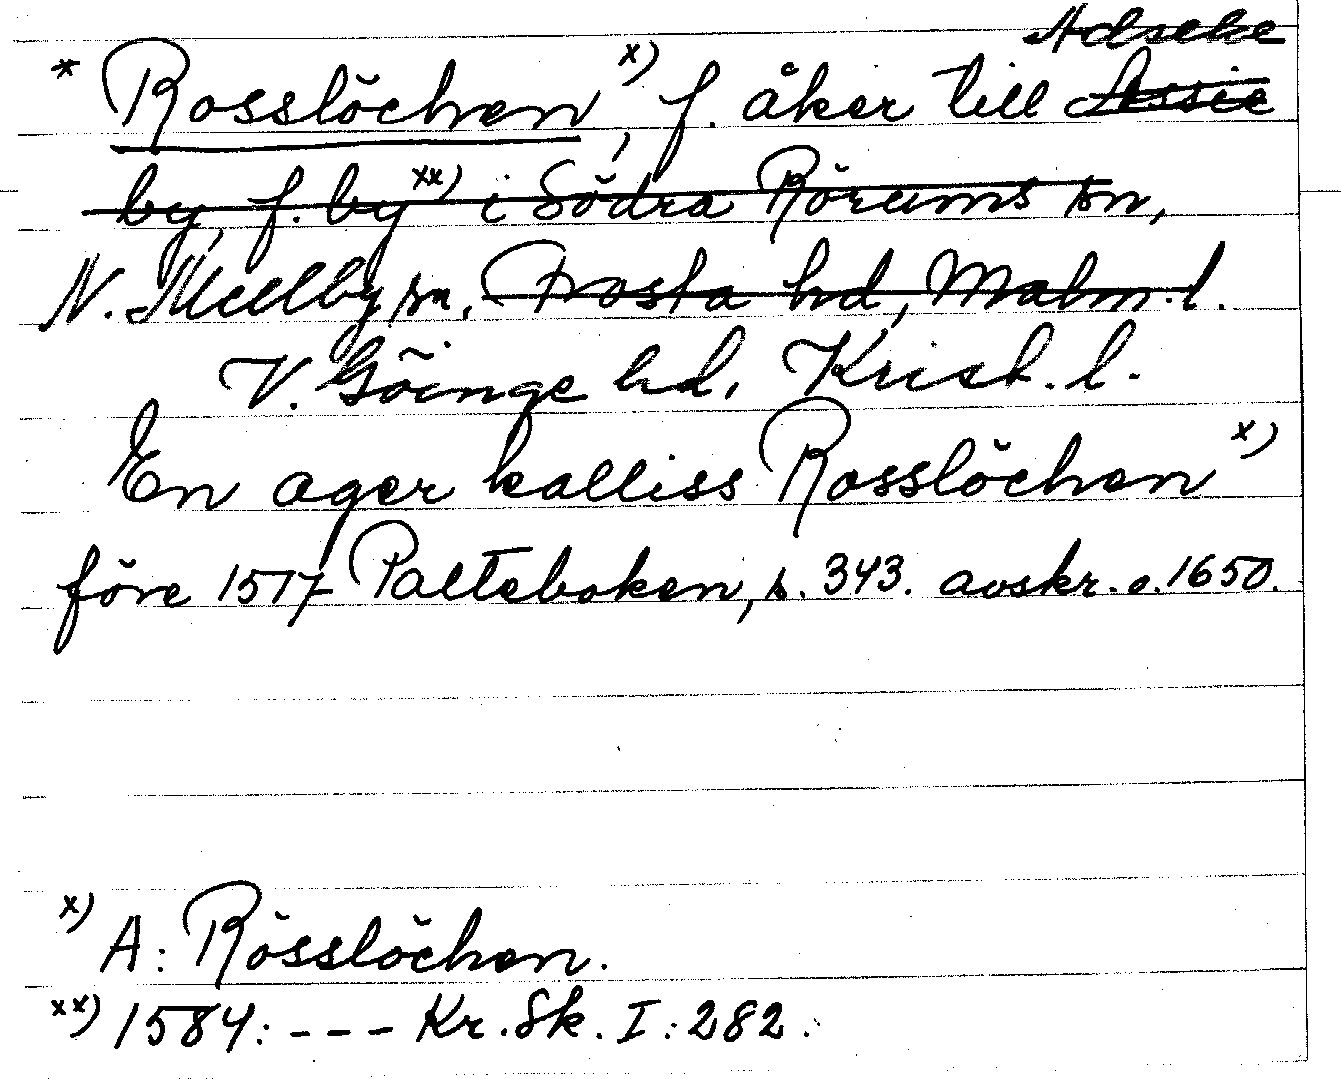 Adseke
* Rosslöchen x), f. åker till Assie
by, f. by xx) i Södra Rörums sn,
N. Mellby sn, Frosta hd, Malm. l.
V. Göinge hd, Krist. l.
En ager kalliss Rosslöchen x)
före 1517 Palteboken, s. 343. avskr. o. 1650.
x) A: Rösslöchen.
xx) 1584: - - - Kr. Sk. I: 282.